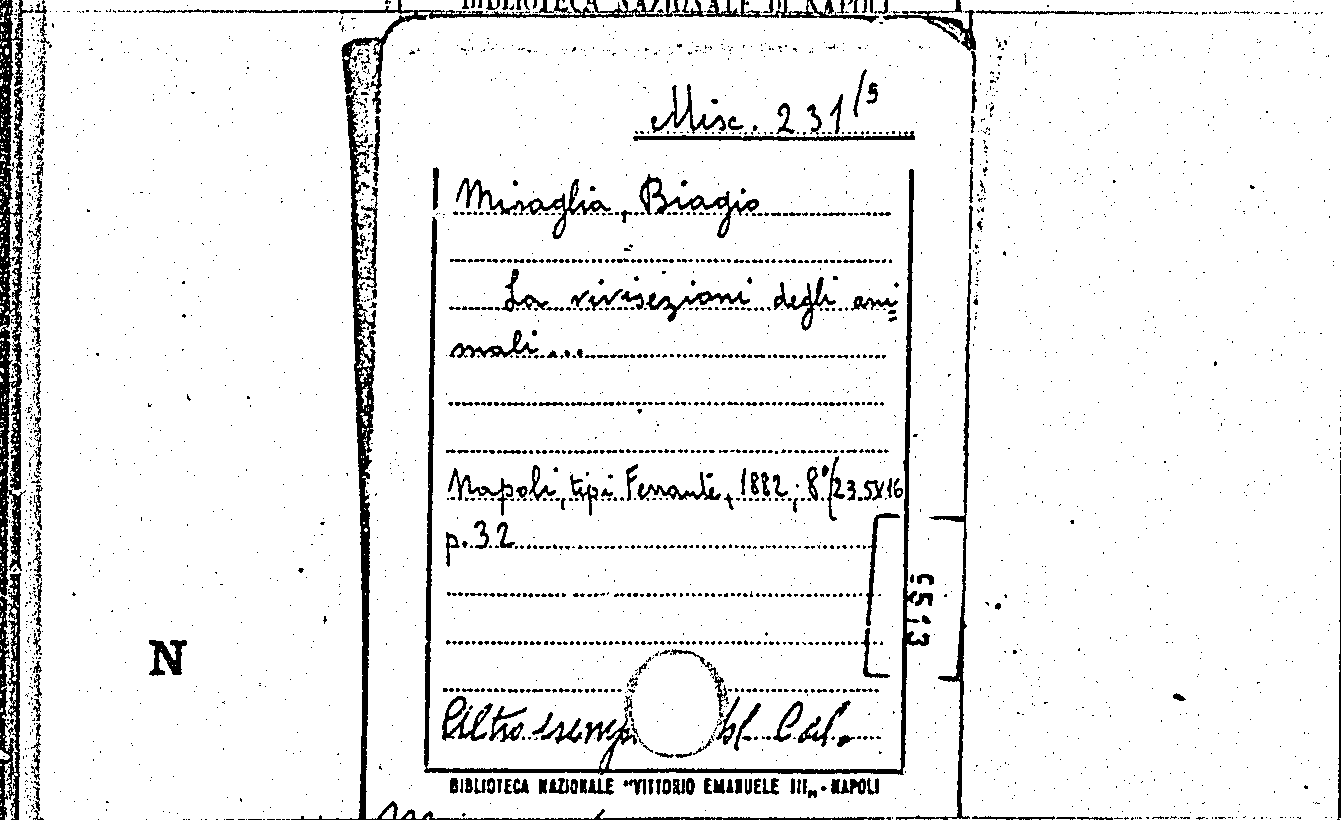 BIBLIOTECA NAZIONALE DI NAPOLI
Misc. 231/5
Miraglia, Biagio
La vivisezioni degli ani
mali...
Napoli, tipi Ferrante, 1882; 8°(23,5X16
p. 32
5513
N
Altro esemp
Cat.
BIBLIOTECA NAZIONALE "VITTORIO EMANUELE III„ - NAPOLI